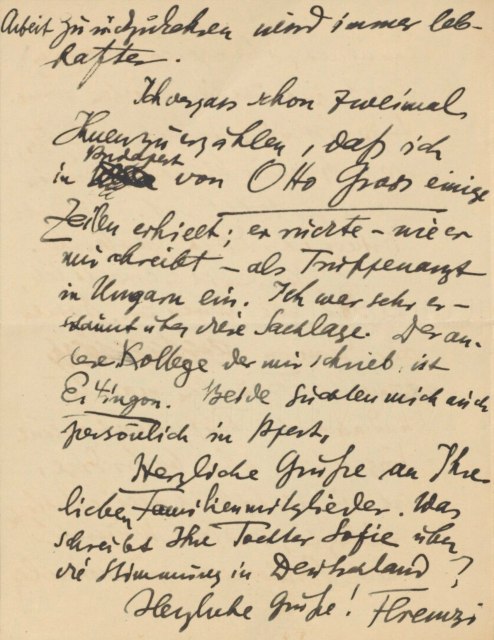 Arbeit zurückzukehren wird immer leb-
hafter.
Ich vergass schon zweimal
Ihnen zu erzählen, daß ich
Budapest
in von Otto Gross einige
Zeilen erhielt; er rückte – wie er
mir schreibt – als Truppenarzt
in Ungarn ein. Ich war sehr er-
staunt über diese Sachlage. Der an-
dere Kollege der mir schrieb ist
Eitingon. Beide suchten mich auch
persönlich in Bpest.
Herzliche Grüße an Ihre
lieben Familienmitglieder. Was
schreibt Ihre Tochter Sofie über
die Stimmung in Deutschland?
Herzliche Grüße! Ferenczi